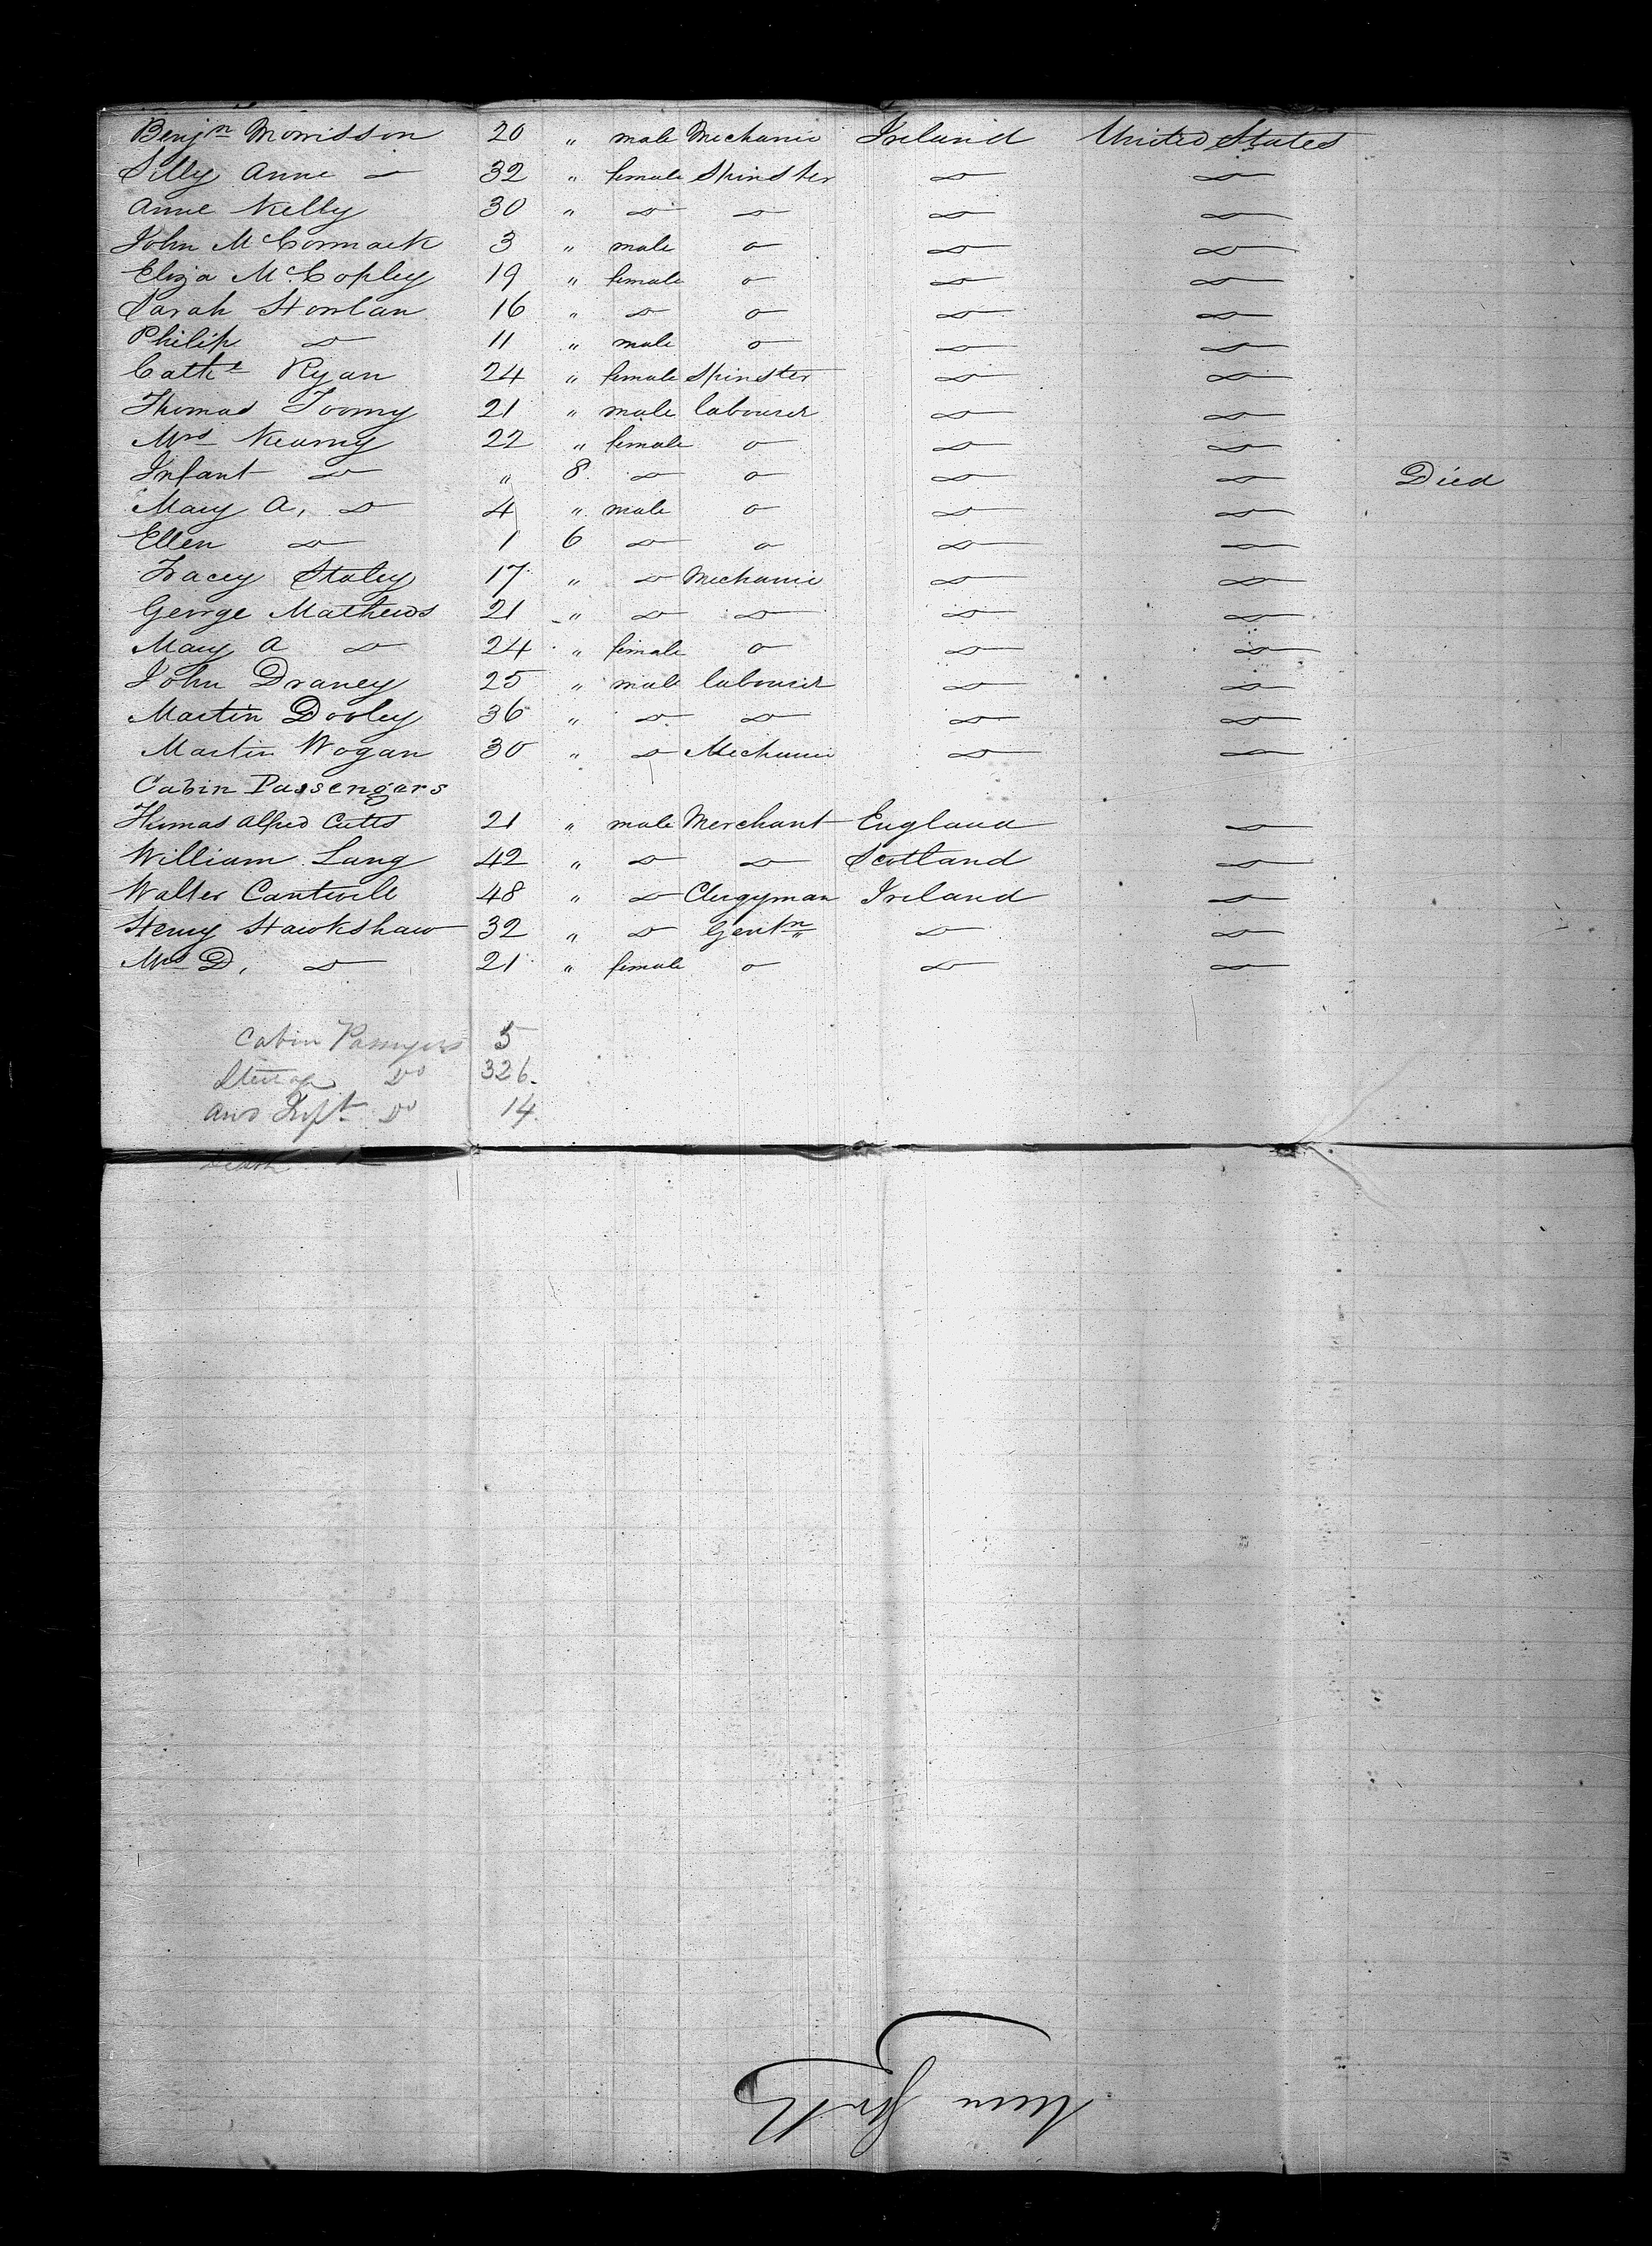 Benjn Morrisson 20 " male Mechanic Ireland United States
Silly Anne do 32 " female Spinster do do
Anne Kelly 30 " do do do do
John McCormack 3 " male o do do
Eliza McCopley 19 " female o do do
Sarah Howlan 16 " do o do do
Philip do 11 " male o do do
Cathe Ryan 24 " female Spinster do do
Thomas Toomy 21 " male labourer do do
Mrs Kearny 22 " female o do do
Infant do " 8 do o do do Died
Mary A, do 4 " male o do do
Ellen do 1 6 do o do do
Tracey Staley 17 " do Mechanic do do
George Mathews 21 " do do do do
Mary A do 24 " female o do do
John Draney 25 " male labourer do do
Martin Dooley 36 " do do do do
Martin Wogan 30 " do Mechanic do do
Cabin Passengers
Thomas Alfred Cutts 21 " male Merchant England do
William Lang 42 " do do Scotland do
Walter Cantwill 48 " do Clergyman Ireland do
Henry Hawkshaw 32 " do Gentn do do
Mrs D, do 21 " female o do do
Cabin Passengers 5
Steerage Do 326
and Inft Do 14
Death 1